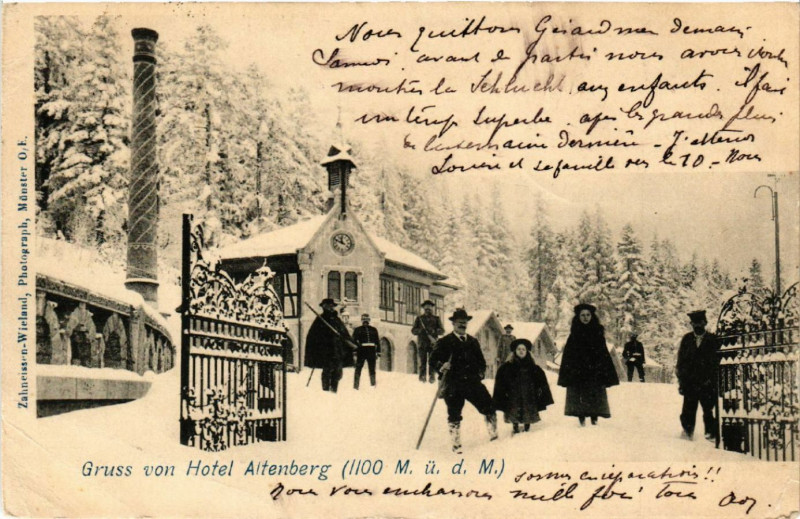 Nous quittons Gérardmer demain
Samedi, avant de partir nous avons voulu
montrer la Schlucht aux enfants. il fait
un temps superbe après les grandes pluies
de la semaine dernière - J'attends
et sa famille vers le 20 - Nous
Zahneissen-Wieland, Photograph, Münster O/E.
Gruss von Hotel Altenberg (1100 M. ü. d. M.)
sommes en !!
nous vous embrassons mille fois tous